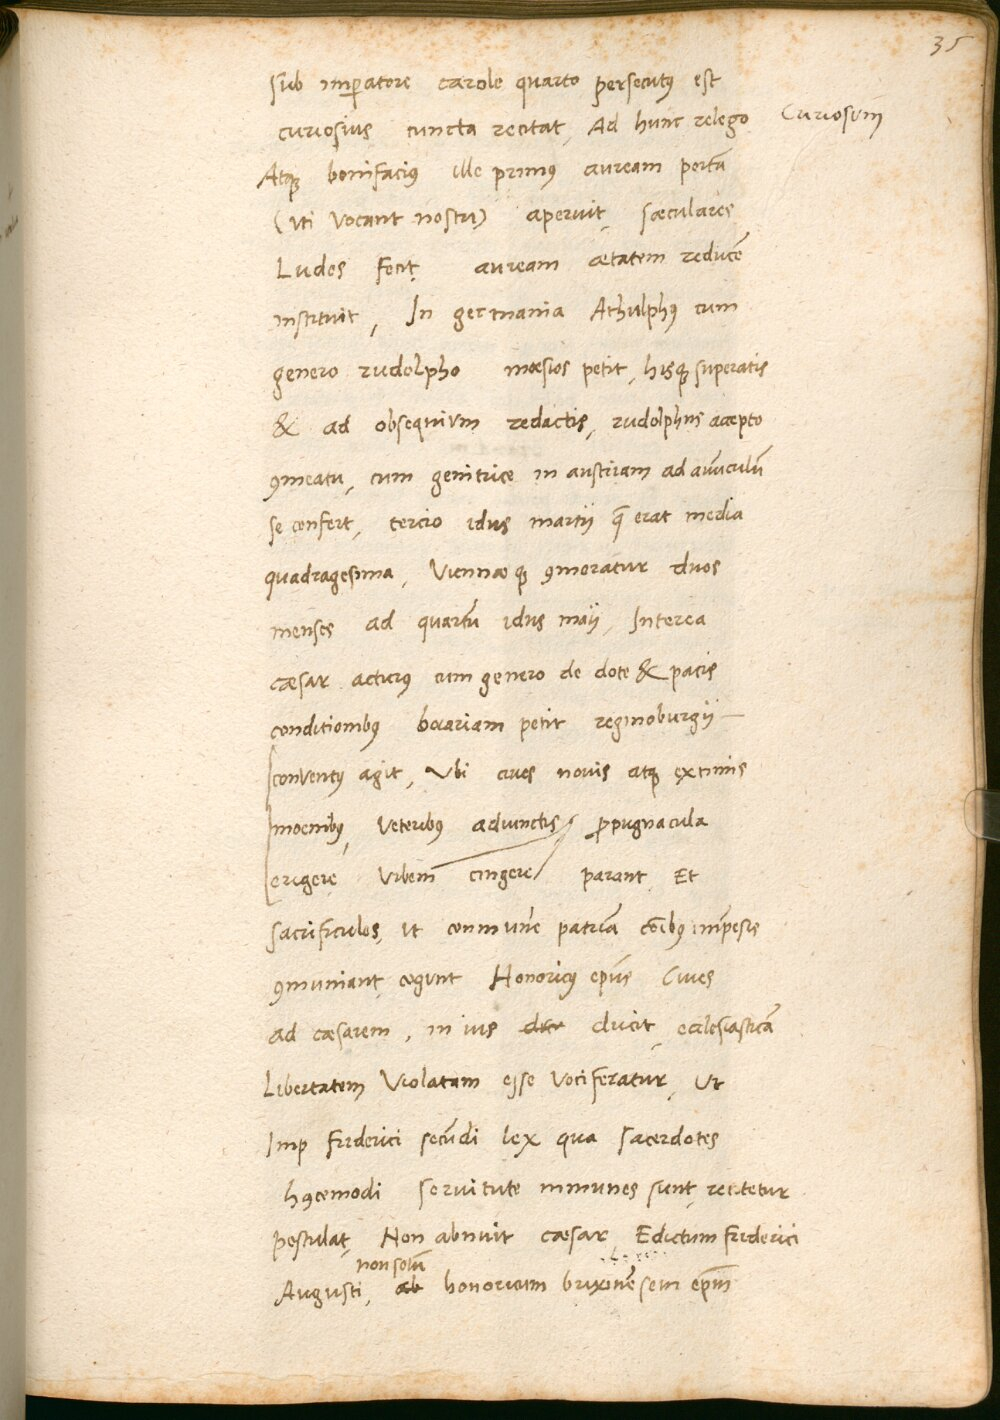 35
sub imperatore carolo quarto persecutus est
curiosius cuncta recitat, Ad hunc relego Curiosum
Atque bonifacius ille primus auream portā
(uti vocant nostri) aperuit, sæculares
Ludos fecit, auream ætatem reducē
instituit, In germania Athulphus cum
genero rudolpho mœsios petit, hisque superatis
& ad obsequium redactis, rudolphus accepto
9meatu, cum genitrice in austriam ad avūculū
se confert, tercio idus martij quæ erat media
quadragesima, Viennæque 9moratur duos
menses ad quartū idus maij, Interea
cæsar acturus cum genero de dote & pacis
conditionibus boiariam petit reginoburgij
conventus agit, Ubi cives novis atque extimis
moenibus, veteribus adiunctis propugnacula
erigere urbem cingere parant Et
sacrificulos, ut communē patriā cōibus impēsis
9muniant cogunt Honoricus epūs Cives
ad cæsarem, in ius ducit, ecclesiasticā
Libertatem violatam esse vociferatur, Ut
Imp friderici secūdi lex qua sacerdotes
huiuscemodi servitute immunes sunt recitetur
postulat, Non abnuit cæsar Edictum friderici
non solū
Augusti, ab honoricum brixinēsem epm̄